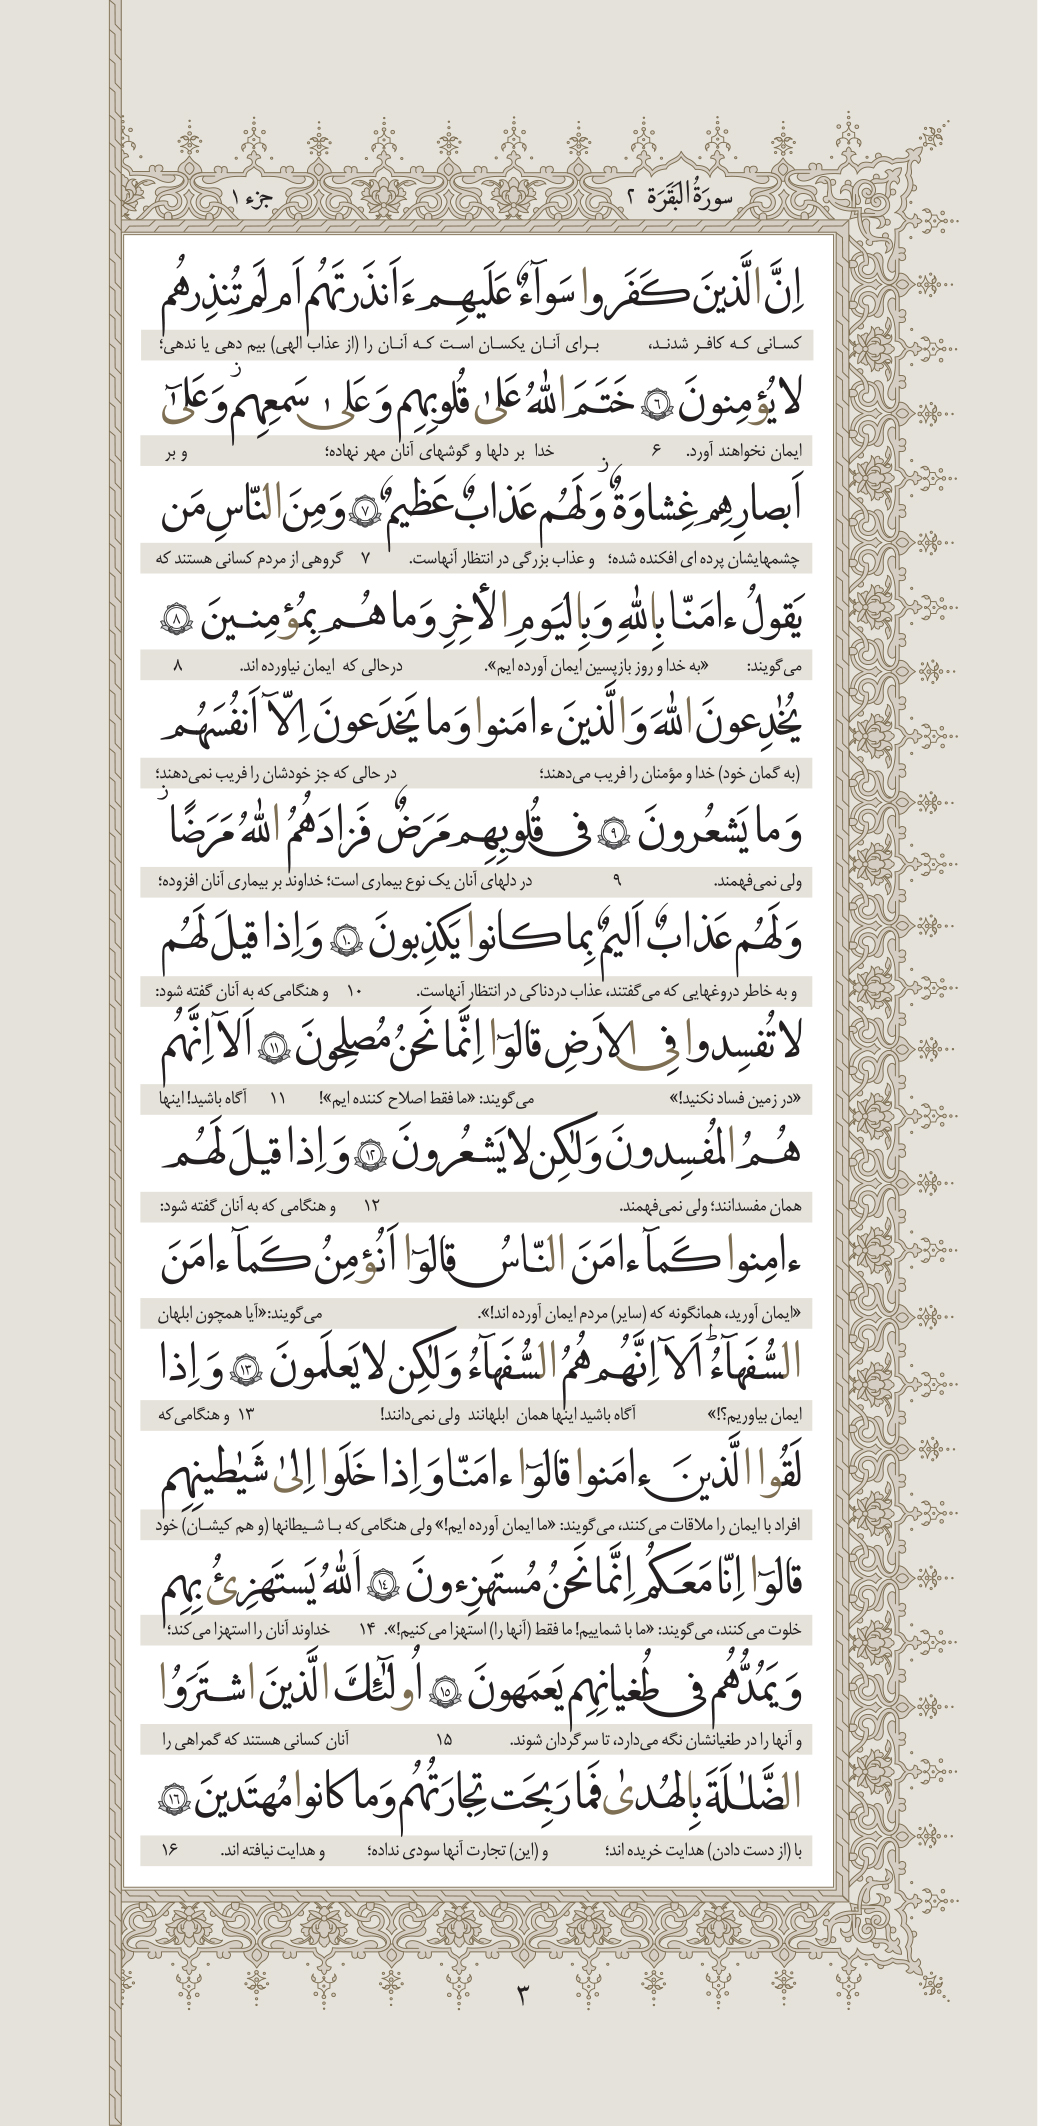 سورَةُ البَقَرَة ٢
جزء ١
اِنَّ الَّذينَ كَفَروا سَوآءٌ عَلَيهِم ءَاَنذَرتَهُم اَم لَم تُنذِرهُم
کسانی که کافر شدند، برای آنان یکسان است که آنان را (از عذاب الهی) بیم دهی یا ندهی؛
لا يُؤمِنونَ ٦ خَتَمَ اللّٰهُ عَلىٰ قُلوبِهِم وَ عَلىٰ سَمعِهِم وَ عَلىٰٓ
ایمان نخواهند آورد. ۶ خدا بر دلها و گوشهای آنان مهر نهاده؛ و بر
اَبصارِهِم غِشاوَةٌ وَ لَهُم عَذابٌ عَظيمٌ ٧ وَ مِنَ النّاسِ مَن
چشمهایشان پرده ای افکنده شده؛ و عذاب بزرگی در انتظار آنهاست. ۷ گروهی از مردم کسانی هستند که
يَقولُ ءامَنّا بِاللّٰهِ وَ بِاليَومِ الأخِرِ وَ ما هُم بِمُؤمِنينَ ٨
می‌گویند: «به خدا و روز بازپسین ایمان آورده ایم». درحالی که ایمان نیاورده اند. ۸
يُخٰدِعونَ اللّٰهَ وَ الَّذينَ ءامَنوا وَ ما يَخدَعونَ اِلّآ اَنفُسَهُم
(به گمان خود) خدا و مؤمنان را فریب می‌دهند؛ در حالی که جز خودشان را فریب نمی‌دهند؛
وَ ما يَشعُرونَ ٩ فى قُلوبِهِم مَرَضٌ فَزادَهُمُ اللّٰهُ مَرَضًا
ولی نمی‌فهمند. ۹ در دلهای آنان یک نوع بیماری است؛ خداوند بر بیماری آنان افزوده؛
وَ لَهُم عَذابٌ اَليمٌ بِما كانوا يَكذِبونَ ١٠ وَ اِذا قيلَ لَهُم
و به خاطر دروغهایی که می‌گفتند، عذاب دردناکی در انتظار آنهاست. ۱۰ و هنگامی که به آنان گفته شود:
لا تُفسِدوا فِى الاَرضِ قالوٓا اِنَّما نَحنُ مُصلِحونَ ١١ اَلآ اِنَّهُم
«در زمین فساد نکنید!» می‌گویند: «ما فقط اصلاح کننده ایم»! ۱۱ آگاه باشید! اینها
هُمُ المُفسِدونَ وَ لٰكِن لا يَشعُرونَ ١٢ وَ اِذا قيلَ لَهُم
همان مفسدانند؛ ولی نمی‌فهمند. ۱۲ و هنگامی که به آنان گفته شود:
ءامِنوا كَمآ ءامَنَ النّاسُ قالوٓا اَنُؤمِنُ كَمآ ءامَنَ
«ایمان آورید، همانگونه که (سایر) مردم ایمان آورده اند!». می‌گویند:«آیا همچون ابلهان
السُّفَهآءُ ؕ اَلآ اِنَّهُم هُمُ السُّفَهآءُ وَ لٰكِن لا يَعلَمونَ ١٣ وَ اِذا
ایمان بیاوریم؟!» آگاه باشید اینها همان ابلهانند ولی نمی‌دانند! ۱۳ و هنگامی که
لَقُوا الَّذينَ ءامَنوا قالوٓا ءامَنّا وَ اِذا خَلَوا اِلىٰ شَيٰطينِهِم
افراد با ایمان را ملاقات می‌کنند، می‌گویند: «ما ایمان آورده ایم!» ولی هنگامی که با شیطانها (و هم کیشان) خود
قالوٓا اِنّا مَعَكُم اِنَّما نَحنُ مُستَهزِءونَ ١٤ اَللّٰهُ يَستَهزِئُ بِهِم
خلوت می‌کنند، می‌گویند: «ما با شماییم! ما فقط (آنها را) استهزا می‌کنیم!». ۱۴ خداوند آنان را استهزا می‌کند؛
وَ يَمُدُّهُم فى طُغيانِهِم يَعمَهونَ ١٥ اُولٰٓئِكَ الَّذينَ اشتَرَوُا
و آنها را در طغیانشان نگه می‌دارد، تا سرگردان شوند. ۱۵ آنان کسانی هستند که گمراهی را
الضَّلٰلَةَ بِالهُدىٰ فَما رَبِحَت تِجارَتُهُم وَ ما كانوا مُهتَدينَ ١٦
با (از دست دادن) هدایت خریده اند؛ و (این) تجارت آنها سودی نداده؛ و هدایت نیافته اند. ۱۶
۳